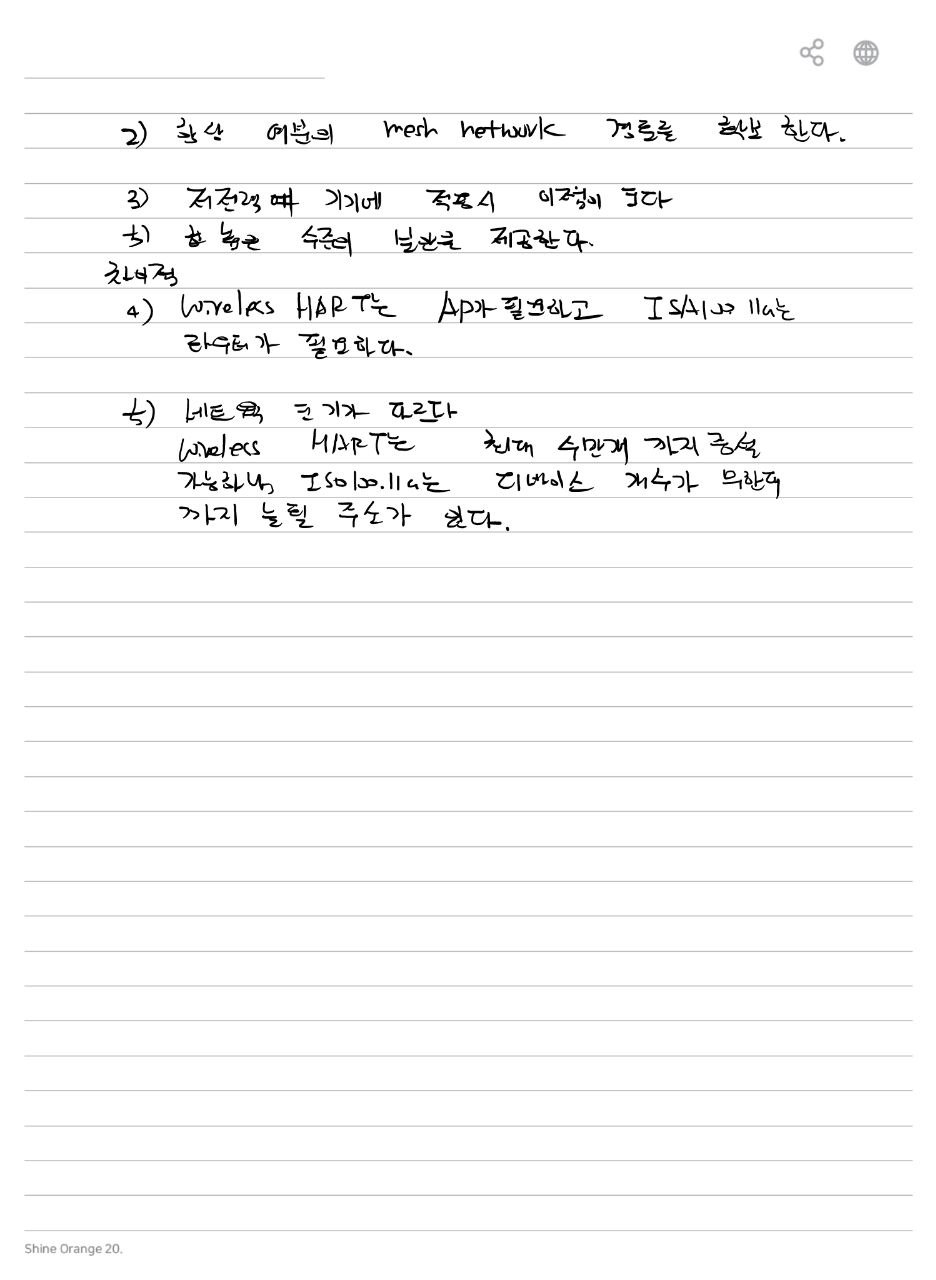 2) 항상 여분의 mesh network 경로를 확보 한다.
3) 저전력 기기에 적용시 이점이 크다
5) 높은 수준의 보안을 제공한다.
차이점
4) Wireless HART는 AP가 필요하고 ISA100.11a는
라우터가 필요하다.
5) 네트웍 크기가 다르다
Wireless HART는 최대 수만개 까지 증설
가능하나, ISO100.11a는 디바이스 개수가 무한대
까지 늘릴 주소가 있다.
Shine Orange 20.